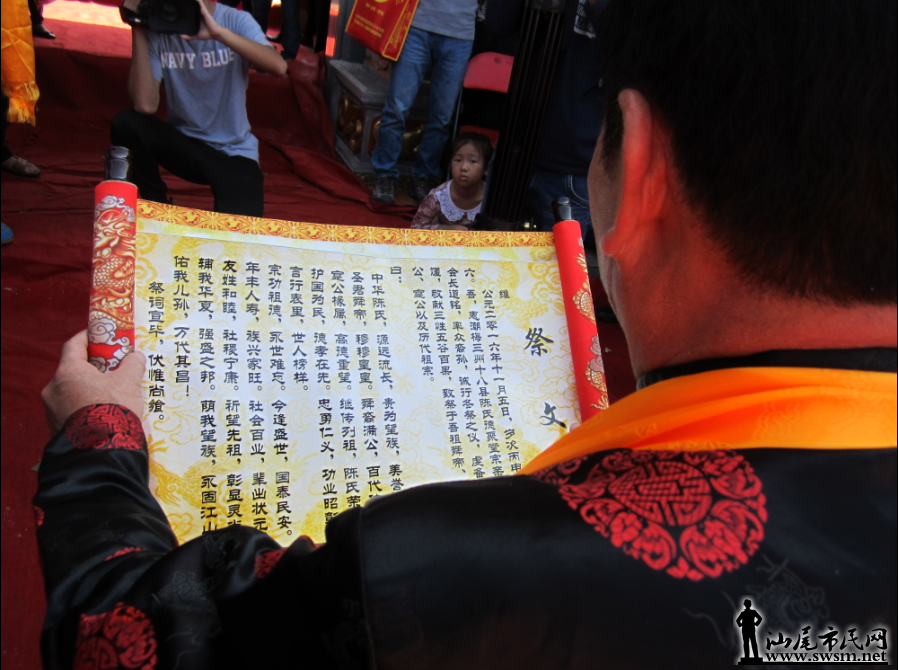 NAVY BLUE
祭文
维
公元二零一六年十一月五日，岁次丙申
六。吾，惠潮梅三州十八县陈氏德聚堂宗亲
会长道铭，率众裔孙，诚行冬祭之仪，虔备
馐，敬献三牲五谷百果，致祭于吾祖舜帝、
公、寔公以及历代祖宗。
曰：
中华陈氏，源远流长，贵为望族，美誉
圣君舜帝，穆穆皇皇。舜裔满公，百代
寔公懿属，高德重望。继传列祖，陈氏荣
护国为民，德孝在先。忠勇仁义，功业昭彰
言行表里，世人榜样。
宗功祖德，永世难忘。今逢盛世，国泰民安。
年丰人寿，族兴家旺。社会百业，辈出状元
友姓和睦，社稷宁康。祈望先祖，彰显灵
辅我华夏，强盛之邦。荫我望族，永固江山
佑我儿孙，万代其昌！
祭词宣毕，伏惟尚飨。
汕尾市民网
www.swsm.net